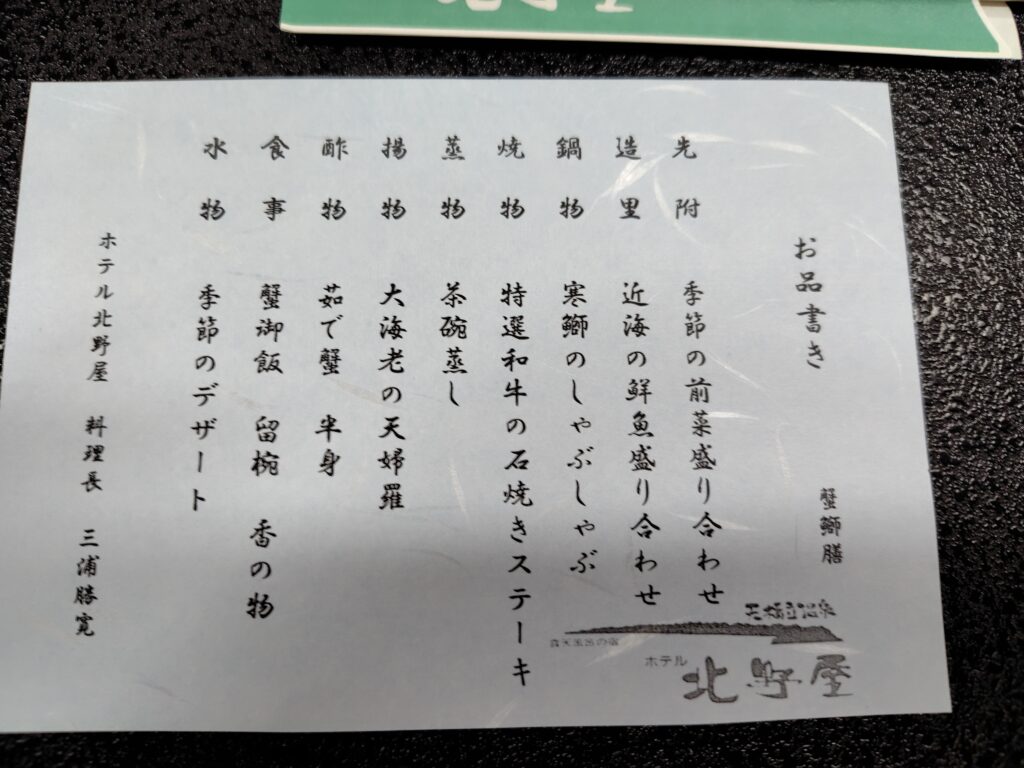 お品書き
蟹鰤膳
先附 季節の前菜盛り合わせ
造里 近海の鮮魚盛り合わせ
鍋物 寒鰤のしゃぶしゃぶ
焼物 特選和牛の石焼きステーキ
蒸物 茶碗蒸し
揚物 大海老の天婦羅
酢物 茹で蟹 半身
食事 蟹御飯 留椀 香の物
水物 季節のデザート
ホテル北野屋 料理長 三浦勝寛
天橋立温泉
露天風呂の宿
ホテル
北野屋